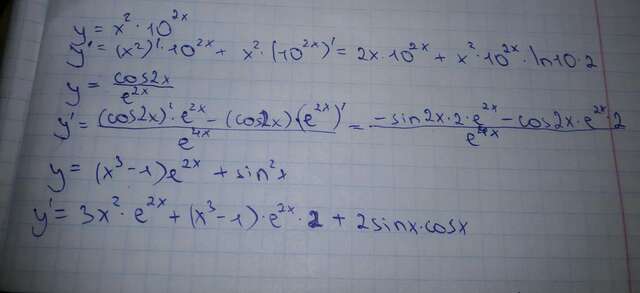 y = x² · 10^(2x)
y' = (x²)' · 10^(2x) + x² · (10^(2x))' = 2x · 10^(2x) + x² · 10^(2x) · ln10 · 2
y = cos2x / e^(2x)
y' = ((cos2x)' · e^(2x) - (cos2x) · (e^(2x))') / e^(4x) = (-sin2x · 2 · e^(2x) - cos2x · e^(2x) · 2) / e^(4x)
y = (x³ - 1)e^(2x) + sin²x
y' = 3x² · e^(2x) + (x³ - 1) · e^(2x) · 2 + 2sinx · cosx